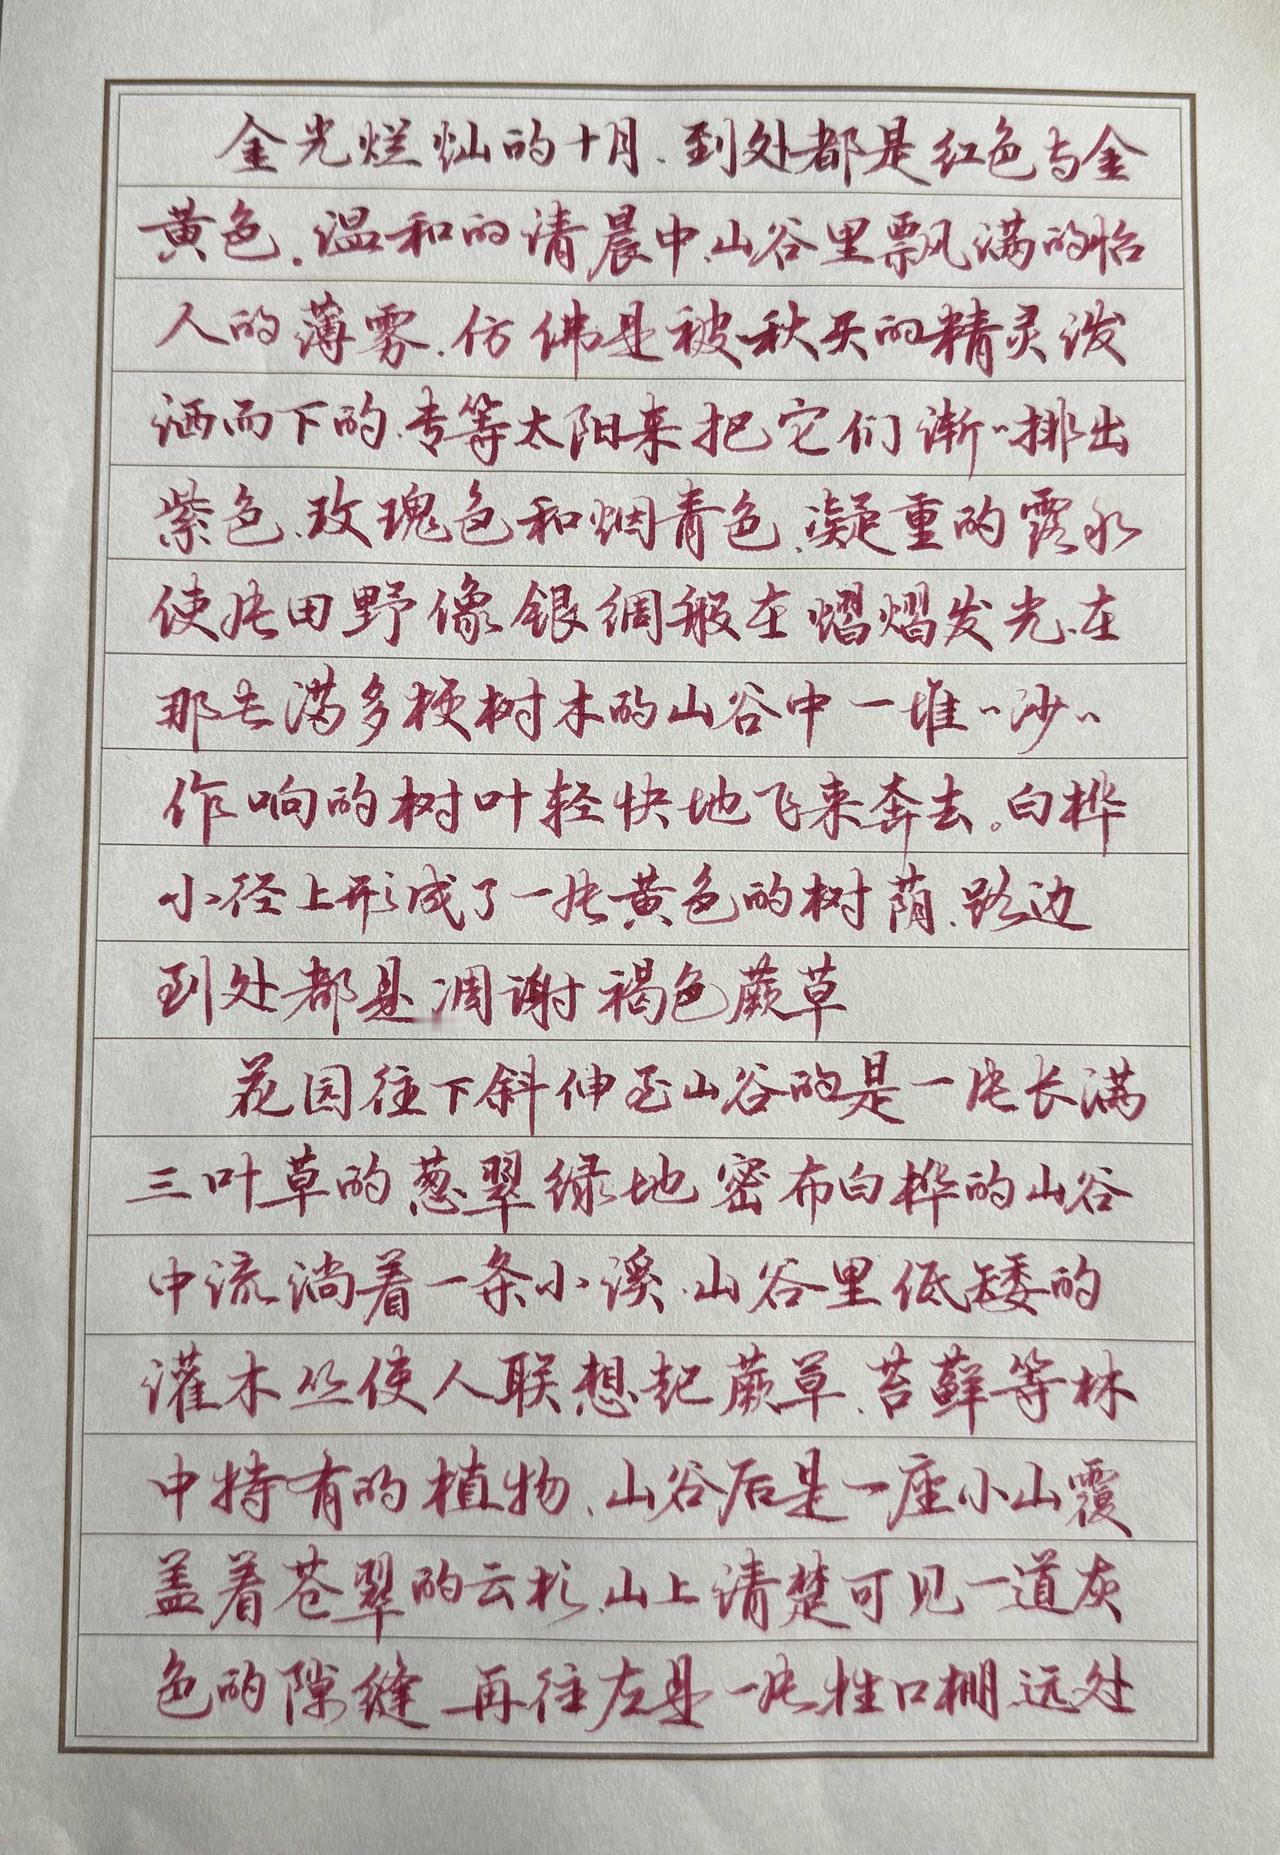 金光烂灿的十月、到处都是红色与金
黄色。温和的清晨中、山谷里飘满的怡
人的薄雾、仿佛是被秋天的精灵泼
洒而下的、专等太阳来把它们渐〃排出
紫色、玫瑰色和烟青色、凝重的露水
使片田野像银绸般在熠熠发光、在
那长满多梗树木的山谷中一堆〃沙〃
作响的树叶轻快地飞来奔去。白桦
小径上形成了一片黄色的树荫、路边
到处都是凋谢褐色蕨草
花园往下斜伸至山谷的是一片长满
三叶草的葱翠绿地密布白桦的山谷
中流淌着一条小溪、山谷里低矮的
灌木丛使人联想起蕨草、苔藓等林
中持有的植物、山谷后是一座小山覆
盖着苍翠的云杉、山上清楚可见一道灰
色的隙缝 再往左是一片牲口棚、远处